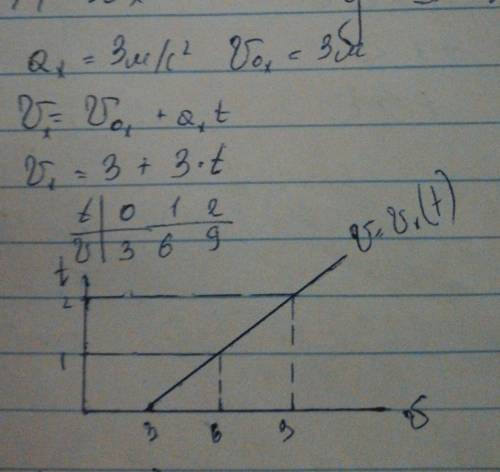 aₓ = 3м/с² v₀ₓ = 3
vₓ = v₀ₓ + aₓt
vₓ = 3 + 3·t
t | 0 1 2
v | 3 6 9
v = vₓ(t)
t
2
1
3 6 9 v